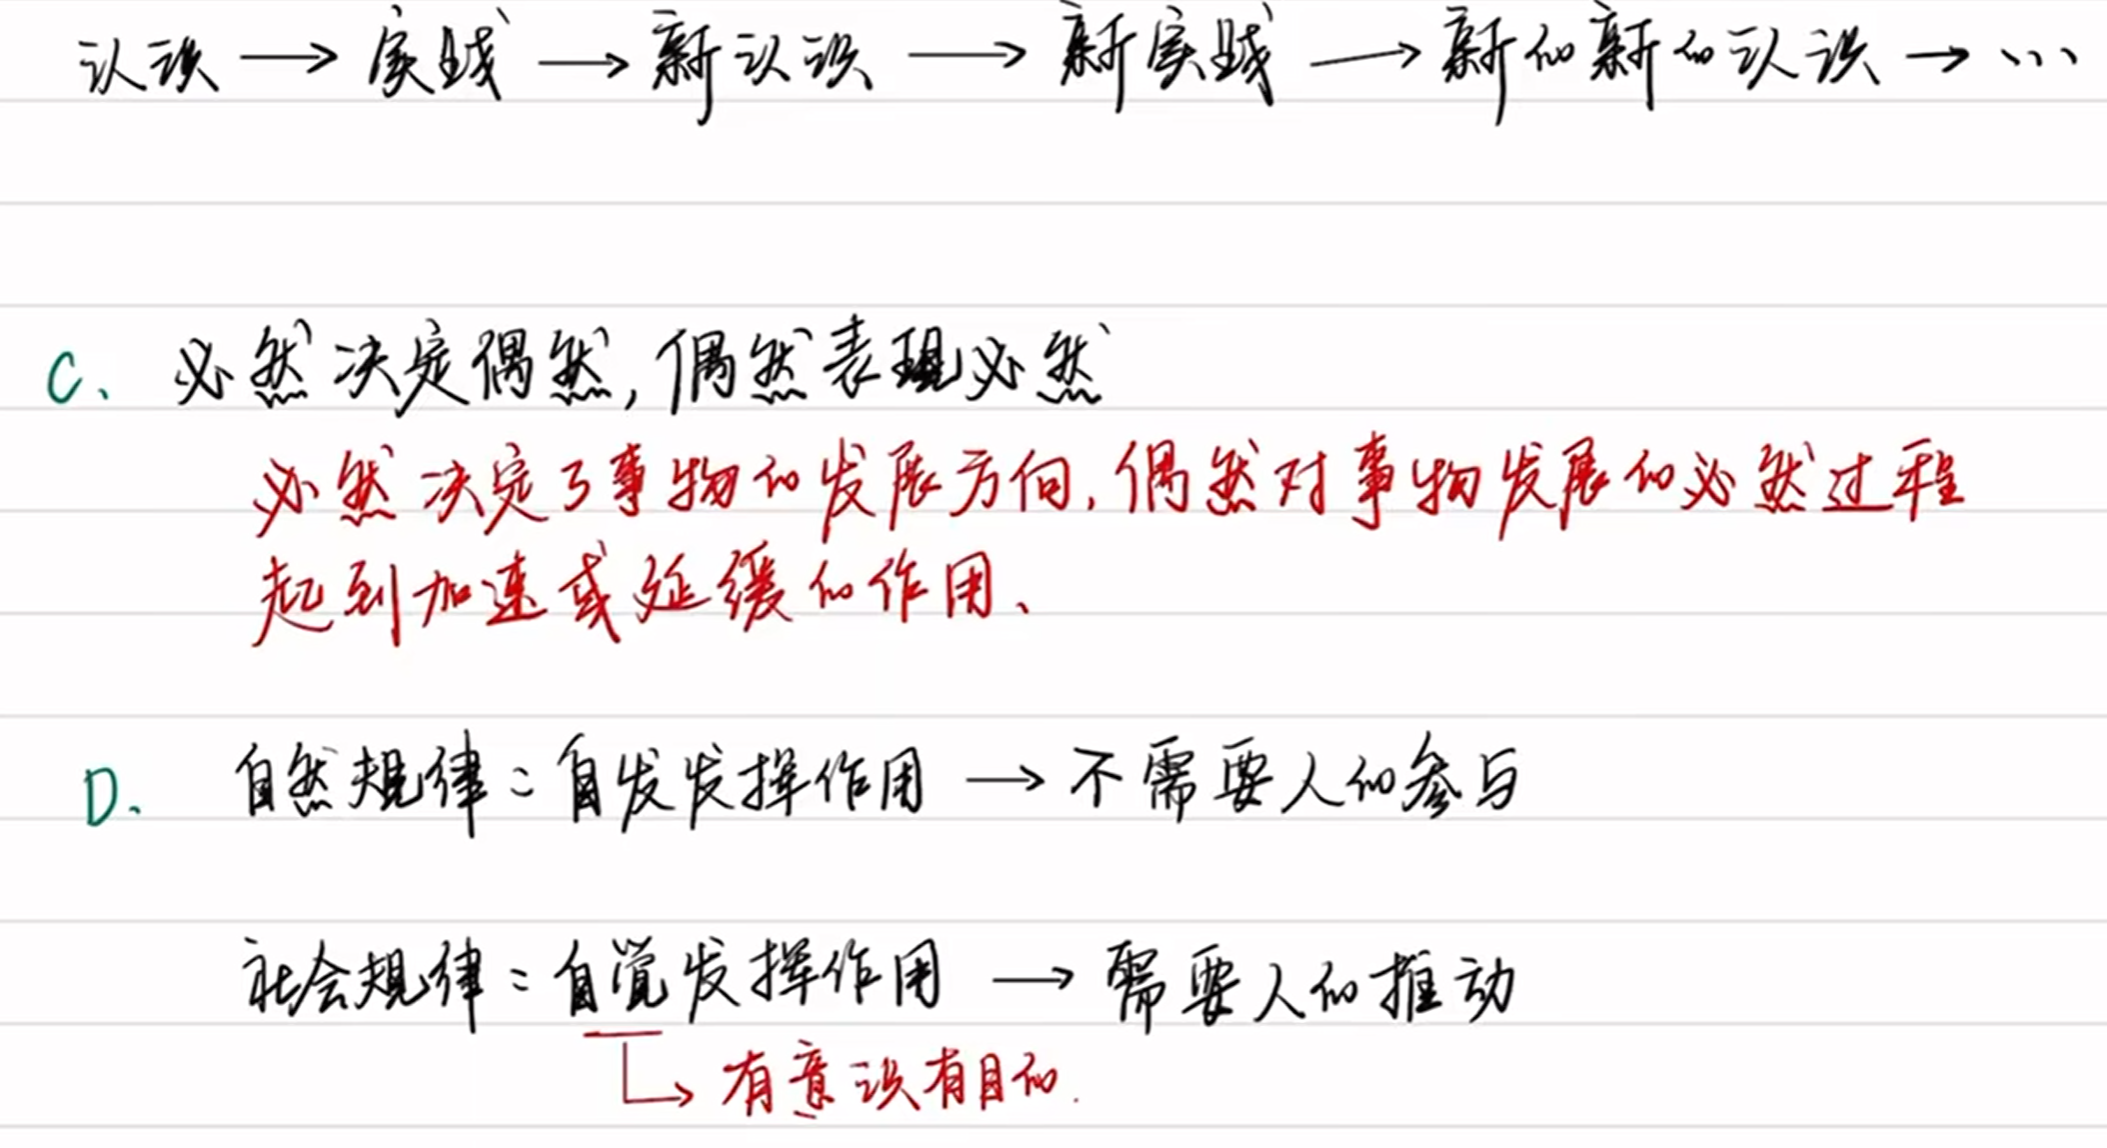 认识→实践→新认识→新实践→新的新的认识→...
C、必然决定偶然,偶然表现必然
必然决定了事物的发展方向,偶然对事物发展的必然过程
起到加速或延缓的作用、
D、自然规律:自发发挥作用→不需要人的参与
社会规律:自觉发挥作用→需要人的推动
有意识有目的.